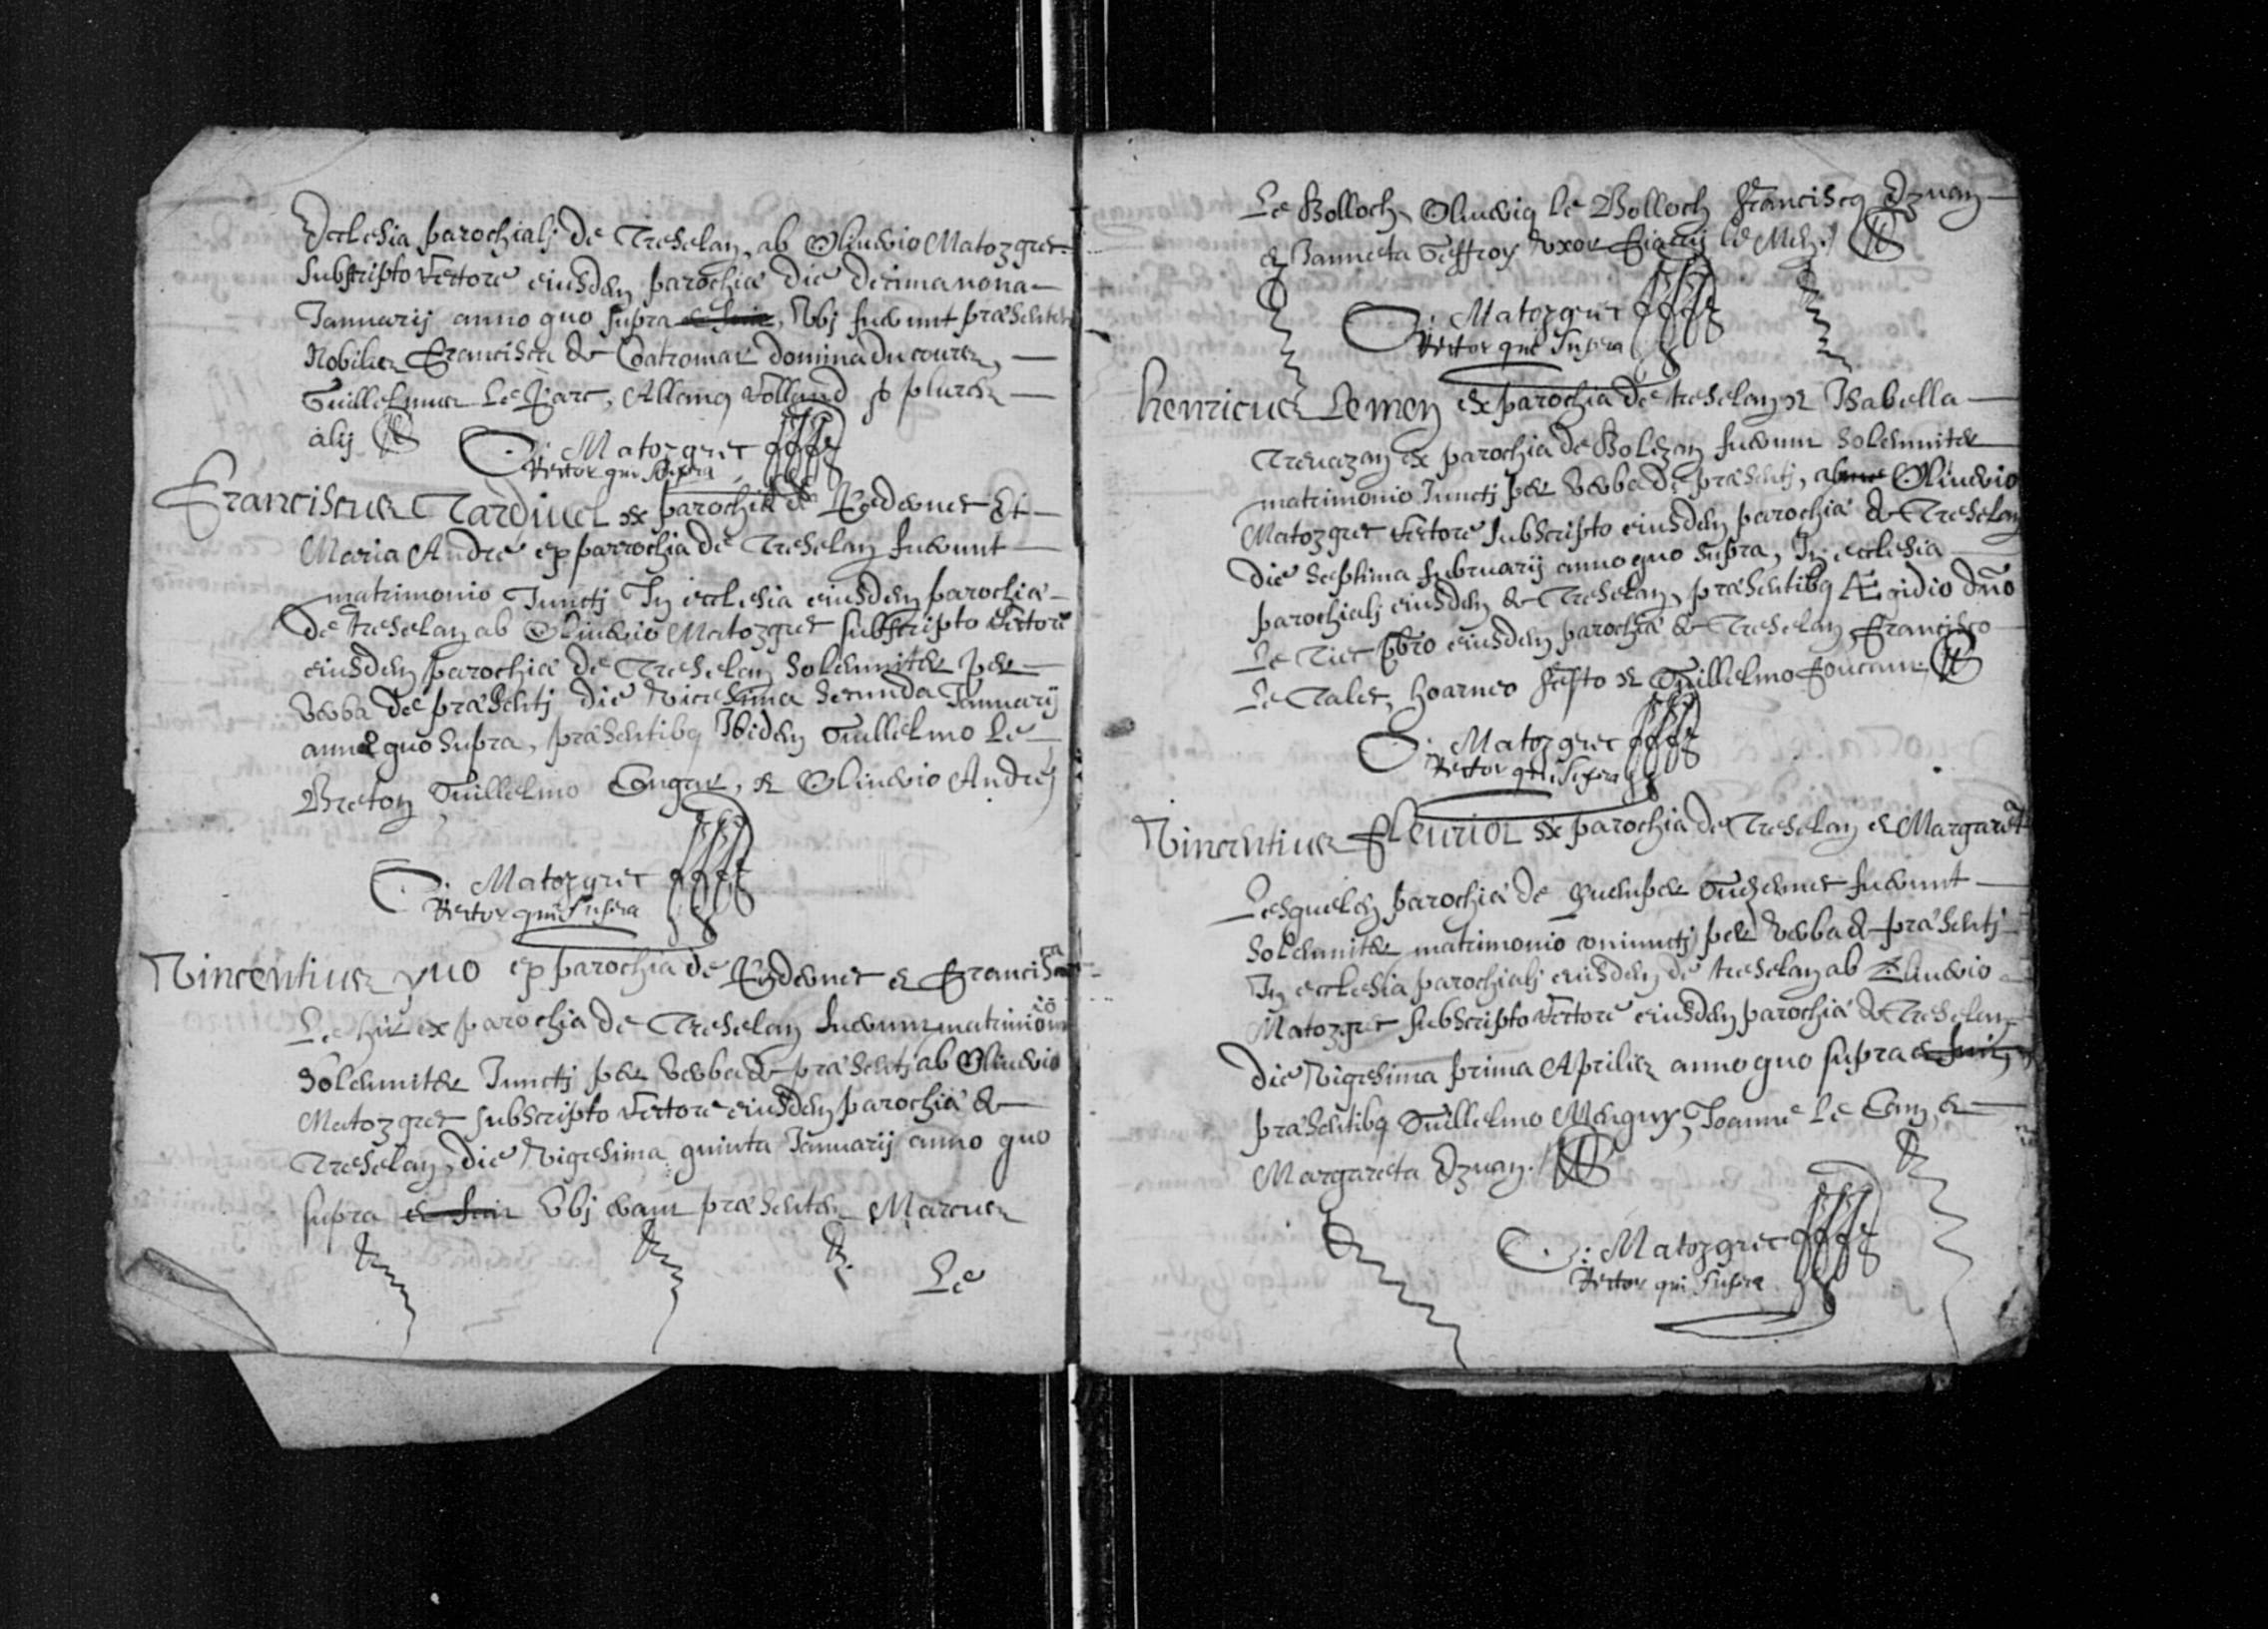 Ecclesia parochialj de Treselan, ab Oliuerio Matozgret
subscripto rectore eiusdem parochiae die decima nona
Januarij anno quo supra, Vbj fuerunt praesentes
Nobiles Francisca de Coatromar domina du
Guillelmus Le Parc, Allanus Rolland & plures
alij
O: Matozgret
Rector qui supra
Franciscus Tardiuel ex parochia de Pedernec Et
Maria André ex parrochia de Treselan fuerunt
matrimonio Junctj In ecclesia eiusdem parochiae
de treselan ab Oliuerio Matozgret subscripto rectore
eiusdem parochiae de Treselan solemniter per
verba de praesentj die vicesima secunda Januarij
anno quo supra, praesentibq Ibidem Guillelmo Le
Breton Guillelmo Congar, et Oliuerio André
O: Matozgret
Rector qui supra
Vincentius yuo ex parochia de Pedernec et Francisca
Le hir ex parochia de Treselan fuerunt matrimonio
solemniter Junctj per verba de praesentj ab Oliuerio
Matozgret subscripto rectore eiusdem parochiae de
Treselan, die vigesima quinta Januarij anno quo
supra Vbj erant praesentes Marcus
Le
Le Bolloch, Oliuerius le Bolloch Franciscq Ezuan
& Janneta Geffroy vxor le Men
O: Matozgret
Rector qui supra
henricus Le men ex parochia de treselan et Isabella
Treuazan ex parochia de Bolezan fuerunt solemniter
matrimonio Junctj per verba de praesentj, ab Oliuerio
Matozgret rectore subscripto eiusdem parochiae de Treselan
die septima februarij anno quo supra, In ecclesia
parochialj eiusdem de Treselan, praesentibq Ægidio dno
Le Tiec pbro eiusdem parochiae de Treselan, Francisco
Le Calet, hoarneo et Guillelmo
O: Matozgret
Rector qui supra
Vincentius Fleuriot ex parochia de Treselan et Margareta
Lesquelen parochiae de quemper Guezenec fuerunt
solemniter matrimonio coniunctj per verba de praesentj
In ecclesia parochialj eiusdem de treselan ab Oliuerio
Matozgret subscripto rectore eiusdem parochiae de Treselan
die vigesima prima Aprilis anno quo supra
praesentibq Guillelmo Menguy, Joanne le Cam, et
Margareta Ezuan.
O: Matozgret
Rector qui supra